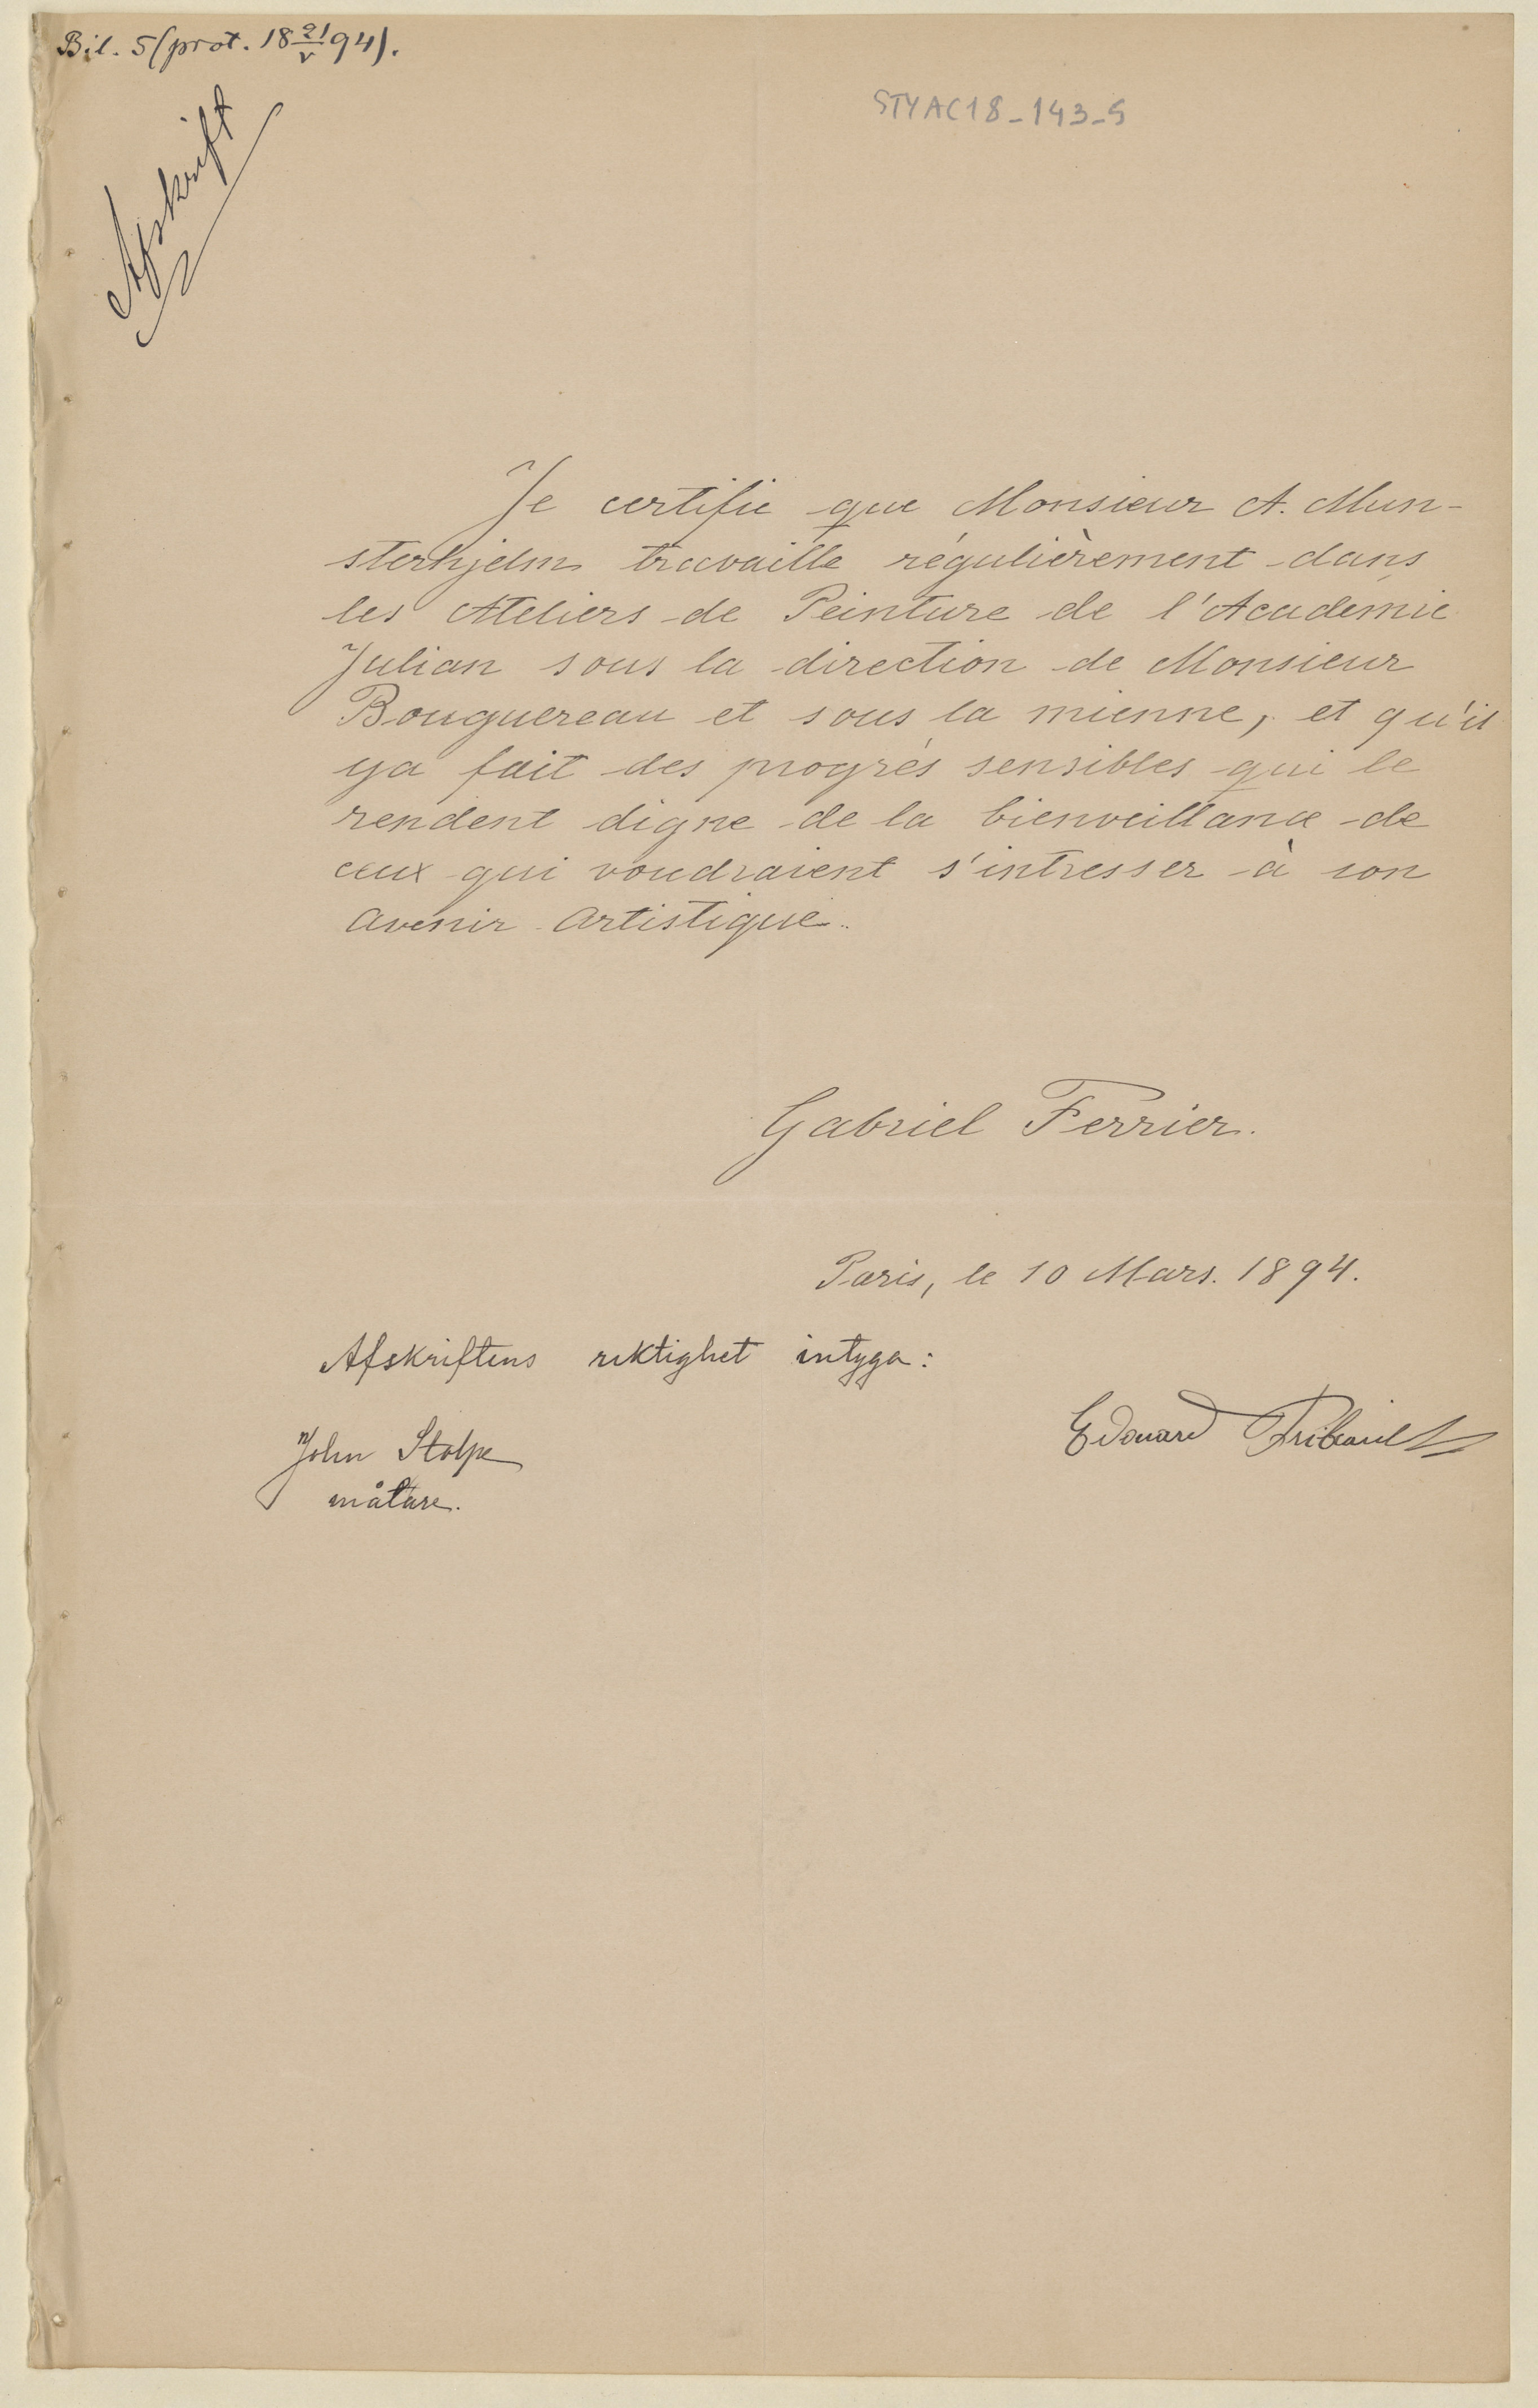 Bil. 5 (prot. 18 21/V 94).
STYAC18-143-5
Afskrift
Je certifie que Monsieur A. Mun-
sterhjelm travaille régulièrement dans
les Ateliers de Peinture de l'Académie
Julian sous la direction de Monsieur
Bouguereau et sous la mienne, et qu'il
ya fait des progrès sensibles qui le
rendent digne de la bienveillance de
ceux qui voudraient s'intresser à son
avenir artistique.
Gabriel Ferrier.
Paris, le 10 Mars. 1894.
Afskriftens riktighet intyga:
Edouard
John Stolpe
målare.